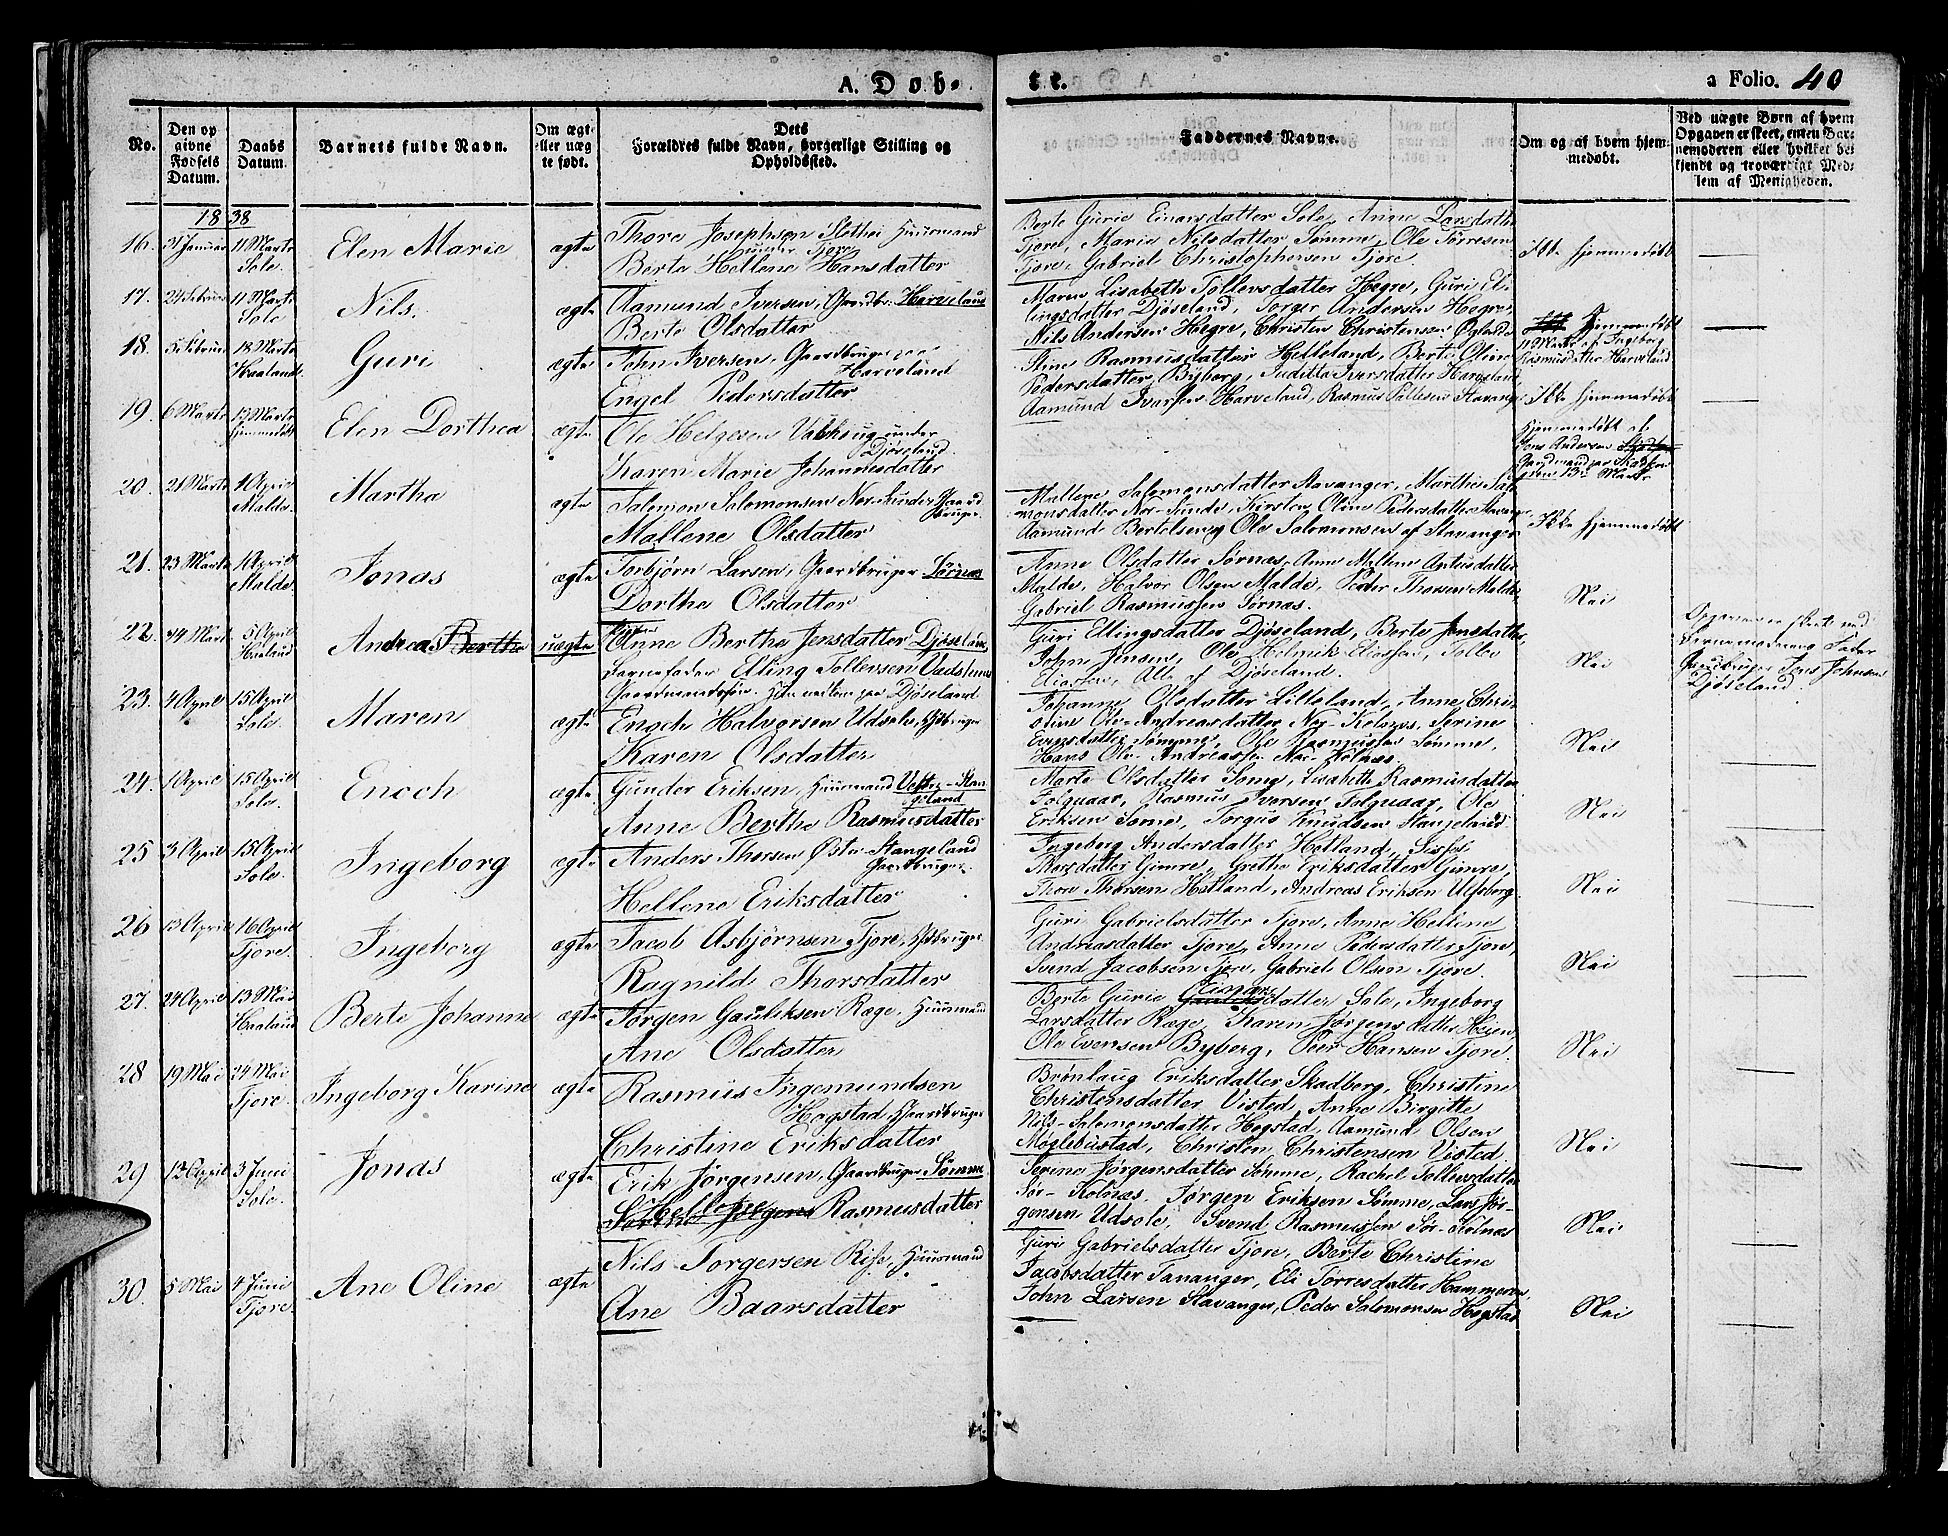 A. Døb-
te.
a Folio. 40
No.
Den op
givne
Fødsels
Datum.
Daabs
Datum.
Barnets fulde Navn.
Om ægt-
eller uæg
te født.
Dets
Forældres fulde Navn, borgerlige Stilling og
Opholdssted.
Faddernes Navne.
Om og af hvem hjem-
medøbt.
Ved uægte Børn af hvem
Opgaven er skeet, enten Bar-
nemoderen eller hvilket be-
kjendt og troværdigt Med-
lem af Menigheden.
1838
16. 31 Januar 11 Marts
Sole.
Elen Marie
ægte
Thore Josephsen Slethei Huusmand
under Tjore
Berte Hellene Hansdatter
Berte Gurie Einarsdatter Sole, Anne Larsdatter
Tjore, Marie Nilsdatter Sømme, Ole Tørresen
Tjore, Gabriel Christophersen Tjore.
Ikke hjemmedøbt
17. 24 Februar 11 Marts
Sole
Nils.
ægte
Aamund Iversen, Gaardbr. Harveland
Berte Olsdatter
Maren Lisabeth Tollevsdatter Hegre, Guri El-
lingsdatter Djøseland, Torger Andersen Hegre,
Nils Andersen Hegre, Christen Christensen
Hjemmedøbt
11 Marts af Ingeborg
Rasmusdatter Harveland
18. 5 Februar 18 Marts
Haaland.
Guri
ægte
John Iversen, Gaardbruger paa
Harveland
Engel Pedersdatter
Stine Rasmusdatter Helleland, Berte Oline
Pedersdatter, Byberg, Juditta Iversdatter Harveland,
Aamund Ivarsen Harveland, Rasmus Tollesen Stavanger
Ikke hjemmedøbt
19. 6 Marts 13 Marts
hjemmedøbt
Elen Dorthea
ægte
Ole Helgesen under
Djøseland.
Karen Marie Johannesdatter
Hjemmedøbt af
Jens Andersen
13de Marts
20. 21 Marts 1 April
Malde.
Martha
ægte
Salomon Salomonsen Nor-Sunde Gaard
bruger.
Mallene Olsdatter
Mallene Salomonsdatter Stavanger, Marthe Salo
monsdatter Nor-Sunde, Kirsten Oline Pedersdatter Stavanger
Aamund Bertelsen og Ole Salomonsen af Stavanger
Ikke hjemmedøbt
21. 23 Marts 1 April
Malde.
Jonas
ægte
Torbjørn Larsen, Gaardbruger Sørnæs
Dorthe Olsdatter
Anne Olsdatter Sørnæs, Anne Mallene
Malde, Halvor Olsen Malde, Peder Thorsen Malde,
Gabriel Rasmussen Sørnæs.
Nei
22. 14 Marts 5 April
Haaland
Andreas Berthe
uægte
Anne Berthe Jensdatter Djøseland,
Barnefader Elling Tollevsen
Gaardmandssøn. paa Djøseland
Guri Ellingsdatter Djøseland, Berte Jensdatter,
John Jensen, Ole Eliassen, Tollev
Eliassen, Alle af Djøseland.
Nei
Opgaven er skeet ved
Barnemoderens Fader
Gaardbruger Jens Johnsen
Djøseland.
23. 4 April 15 April
Sole.
Maren
ægte
Enoch Halvorsen Udsole, Gdbruger
Karen Olsdatter
Johanne Olsdatter Lilleland, Anne Chris-
tine Ole-Andreasdatter Nor-Kolnæs, Serine
Evensdatter Sømme, Ole Rasmussen Sømme,
Hans Ole-Andreassen Nor-Kolnæs.
Nei
24. 1 April 15 April
Sole.
Enoch
ægte
Gunder Eriksen, Huusmand Vester-Stan
geland
Anne Berthe Rasmusdatter
Marte Olsdatter Some, Lisabeth Rasmusdatter
Folquaar, Rasmus Iversen Folquaar, Ole
Eriksen Some, Torgus Knudsen Stangeland.
Nei
25 3 April 15 April
Sole.
Ingeborg
ægte
Anders Thorsen Øster-Stangeland
Gaardbruger.
Hellene Eriksdatter
Ingeborg Andersdatter Hetland, Sissel
Gimre, Grethe Eriksdatter Gimre,
Thore Thorsen Hetland, Andreas Eriksen
Nei
26 13 April 16 April
Tjore.
Ingeborg
ægte
Jacob Asbjørnsen Tjore, Gdbruger
Ragnild Thorsdatter
Guri Gabrielsdatter Tjore, Anne Hellene
Andreasdatter Tjore, Anne Pedersdatter Tjore,
Svend Jacobsen Tjore, Gabriel Olsen Tjore.
Nei
27. 24 April 13 Mai
Haaland
Berte Johanne
ægte
Jørgen Gauliksen Ræge, Huusmand
Ane Olsdatter
Berte Gurie Einarsdatter Sole, Ingeborg
Larsdatter Ræge, Karen Jørgensdatter
Ole Evensen Byberg, Peer Hansen Tjore.
Nei
28 19 Mai 24 Mai
Tjore.
Ingeborg Karine
ægte
Rasmus Ingemundsen
Hogstad, Gaardbruger
Christine Eriksdatter
Brønlaug Eriksdatter Skadberg, Christine
Christensdatter Visted, Anne Birgitte
Nils-Salomonsdatter Hogstad, Aamund Olsen
Møglebustad, Christen Christensen Visted.
Nei
29 12 April 3 Juni
Sole.
Jonas
ægte
Erik Jørgensen, Gaardbruger Sømme
Hellene Rasmusdatter
Serene Jørgensdatter Sømme, Rachel Tollevsdatter
Sør-Kolnæs. Jørgen Eriksen Sømme, Lars Jør-
gensen Udsole, Svend Rasmussen Sør-Kolnæs
Nei
30. 5 Mai 4 Juni
Tjore.
Ane Oline
ægte
Nils Torgersen Risse, Huusmand
Ane Baarsdatter
Guri Gabrielsdatter Tjore, Berte Christine
Jacobsdatter Tananger, Eli Tørresdatter Hammeren,
John Larsen Stavanger, Peder Salomonsen Hogstad
Nei